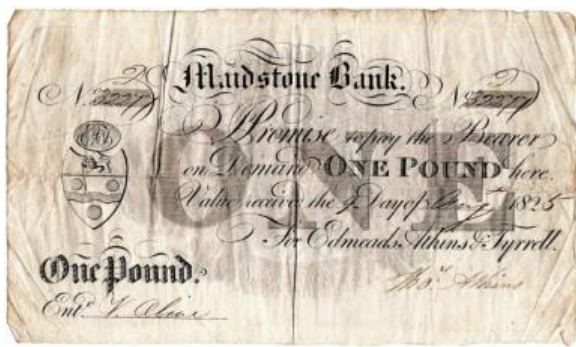 Maidstone Bank.
2 2
No. 3227 No. 3227
I Promise to pay the Bearer
on Demand ONE POUND here.
Value received the 9 Day of Augt 1825
For Edmeads, Atkins & Tyrrell.
One Pound.
Thos. Atkins
Entd
ONE